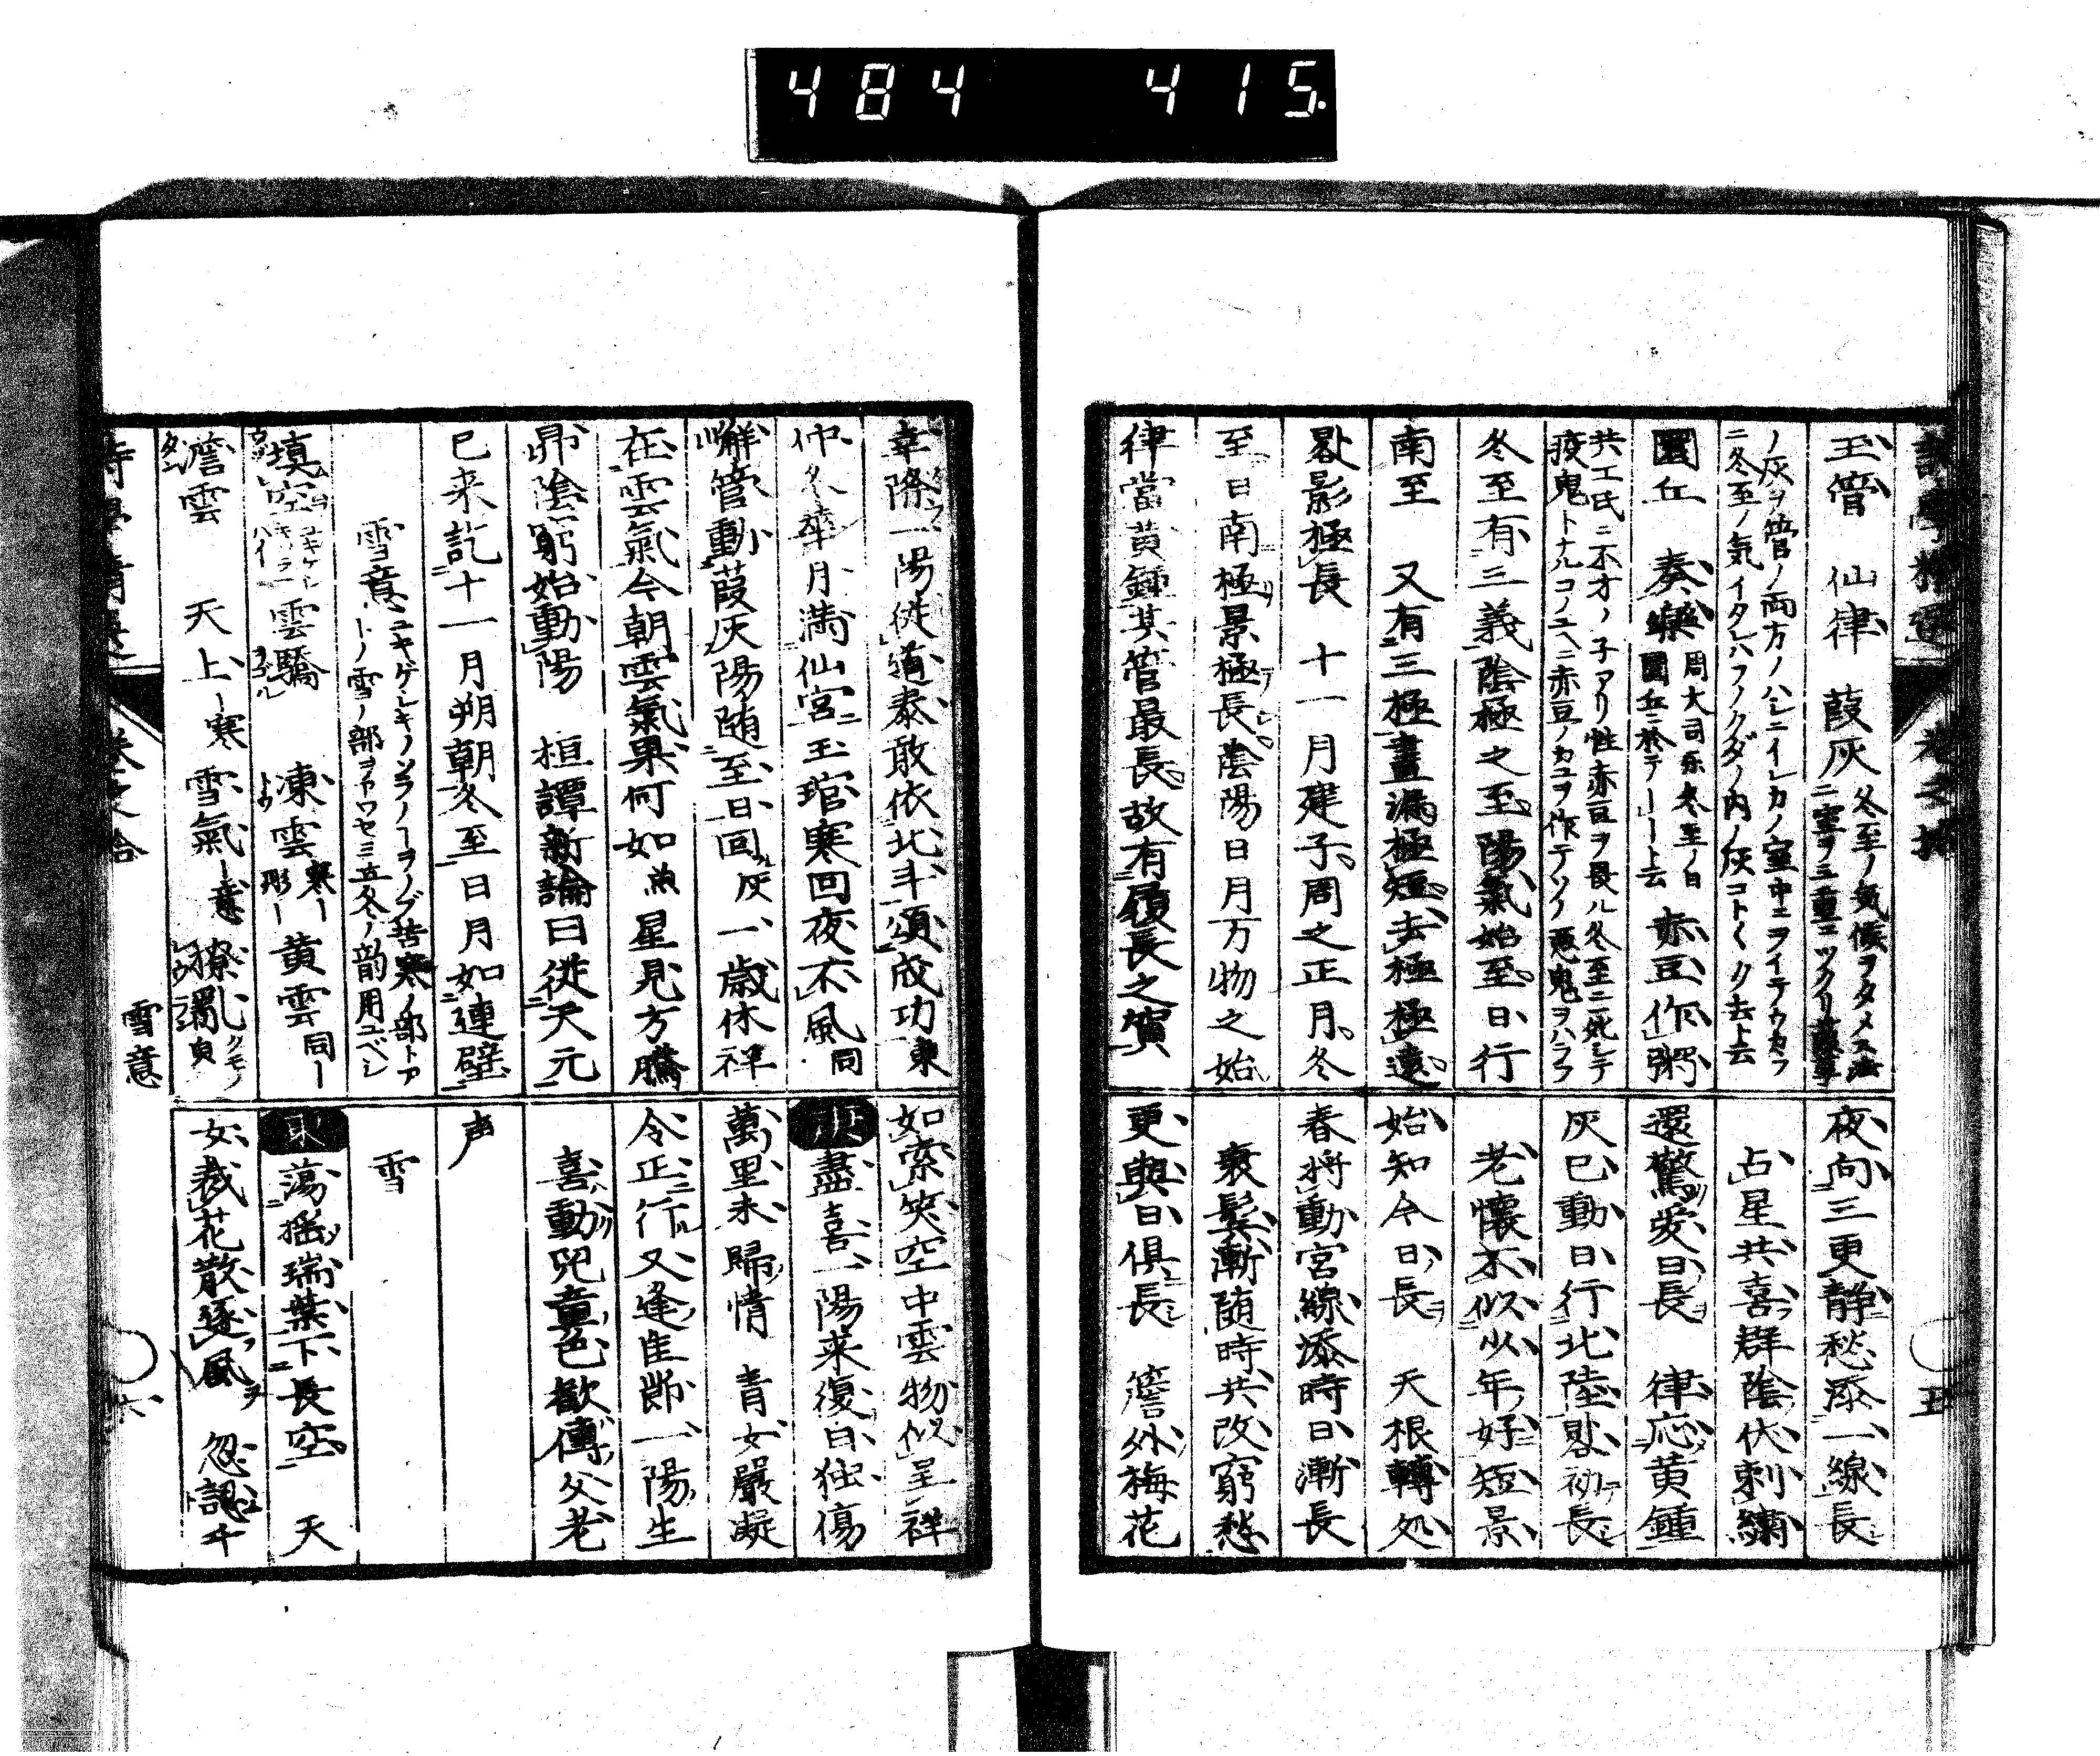 484 415
玉管 仙律 葭灰 冬至ノ気候ヲタメス
ノ灰ヲ管ノ両方ノハシニイレカノ室中ニヲイテウカヽフ
ニ冬至ノ気イタレハフノクダノ内ノ灰コト〱ク去ト云
圜丘 奏樂 周大司乐冬至ノ日圜丘ニ於テ――ト云 赤豆作粥
共工氏ニ不才ノ子アリ性赤豆ヲ畏ル冬至ニ死シテ
疫鬼トナルコノユヘニ赤豆ノカユヲ作テソノ悪鬼ヲハラフ
冬至有三義陰極之至陽氣始至日行
南至 又有三極晝漏極短去極極遠
晷影極長 十一月建子周之正月冬
至日南極景極長陰陽日月万物之始
律當黄鍾其管最長故有履長之賀
夜向三更静愁添一線長
占星共喜群陰伏刺繍
還驚愛日長 律応黄鍾
灰已動日行北陸晷初長
老懐不似少年好短景
始知今日長 天根轉処
春将動宮線添時日漸長
衰鬓漸随時共改窮愁
更與日倶長 簷外梅花
五
幸際一陽従道泰敢依北斗頌成功 東
仲冬華月満仙宮玉琯寒回夜不風 同
嶰管動葭灰陽随至日回 灰 一歳休祥
在雲氣今朝雲氣果何如 魚 星見方騰
昴陰窮始動陽 桓譚新論曰従天元
已来訖十一月朔朝冬至日月如連璧
雪意 ユキゲシキノソラノヿヲノブ苦寒ノ部トア
トノ雪ノ部ヲアワセミ立冬ノ韵用ユベシ
填空 雲驕 凍雲 寒― 彤― 黄雲 同―
澹雲 天上―寒 雪氣―意 撩亂 クモノ皃
如索笑空中雲物似呈祥
盡喜一陽来復日独傷
萬里未歸情 青女嚴凝
令正行又逢佳節一陽生
喜動兒童色歓傳父老
声
雪
東 蕩揺瑞葉下長空 天
女裁花散逐風 忽認千
雪意
六